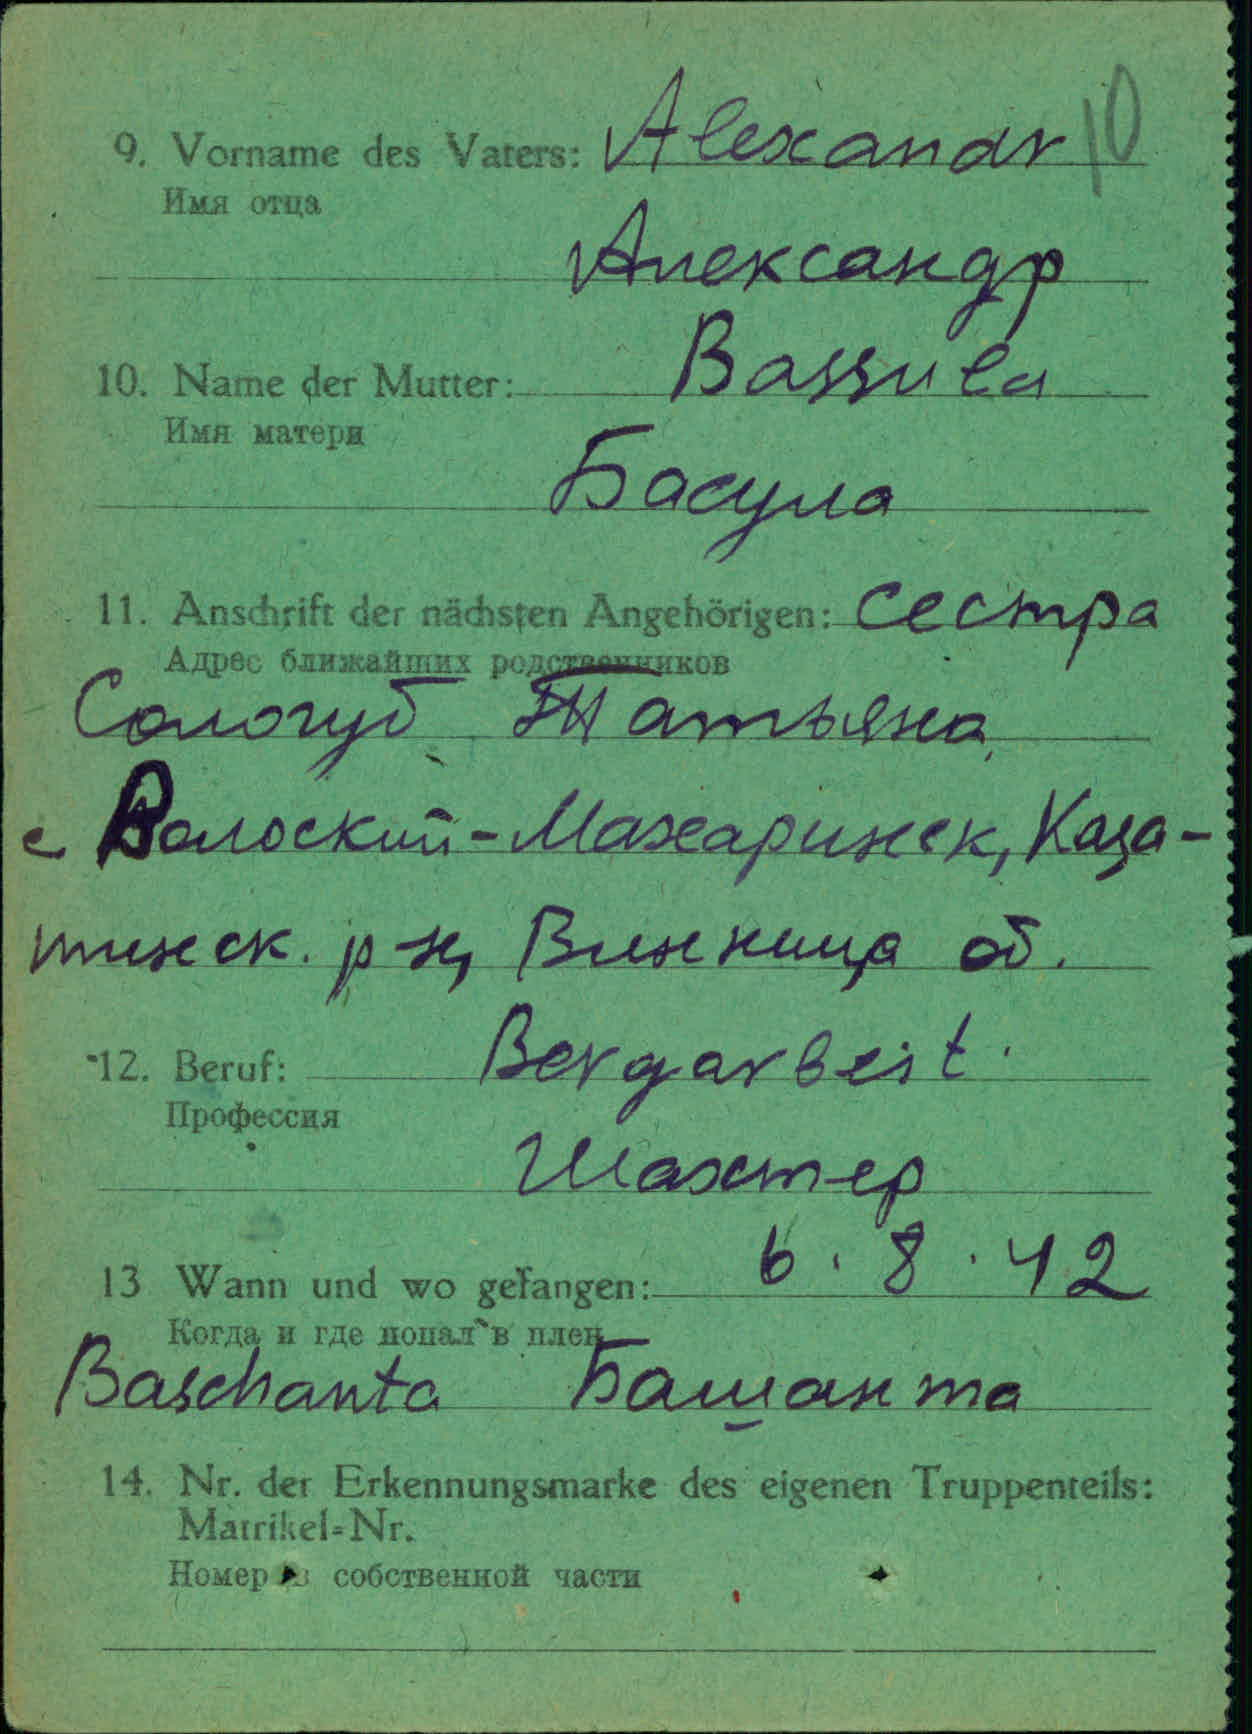 9. Vorname des Vaters: Alexandr 10
Имя отца
Александр
10. Name der Mutter: Bassula
Имя матери
Басула
11. Anschrift der nächsten Angehörigen: сестра
Адрес ближайших родственников
Сологуб Татьяна
с Волоский-Махаринск, Каза-
тинск. р-н, Винница об.
12. Beruf: Bergarbeit.
Профессия
Шахтер
13 Wann und wo gefangen: 6.8.42
Когда и где попал в плен
Baschanta Башанта
14. Nr. der Erkennungsmarke des eigenen Truppenteils:
Matrikel=Nr.
Номер собственной части